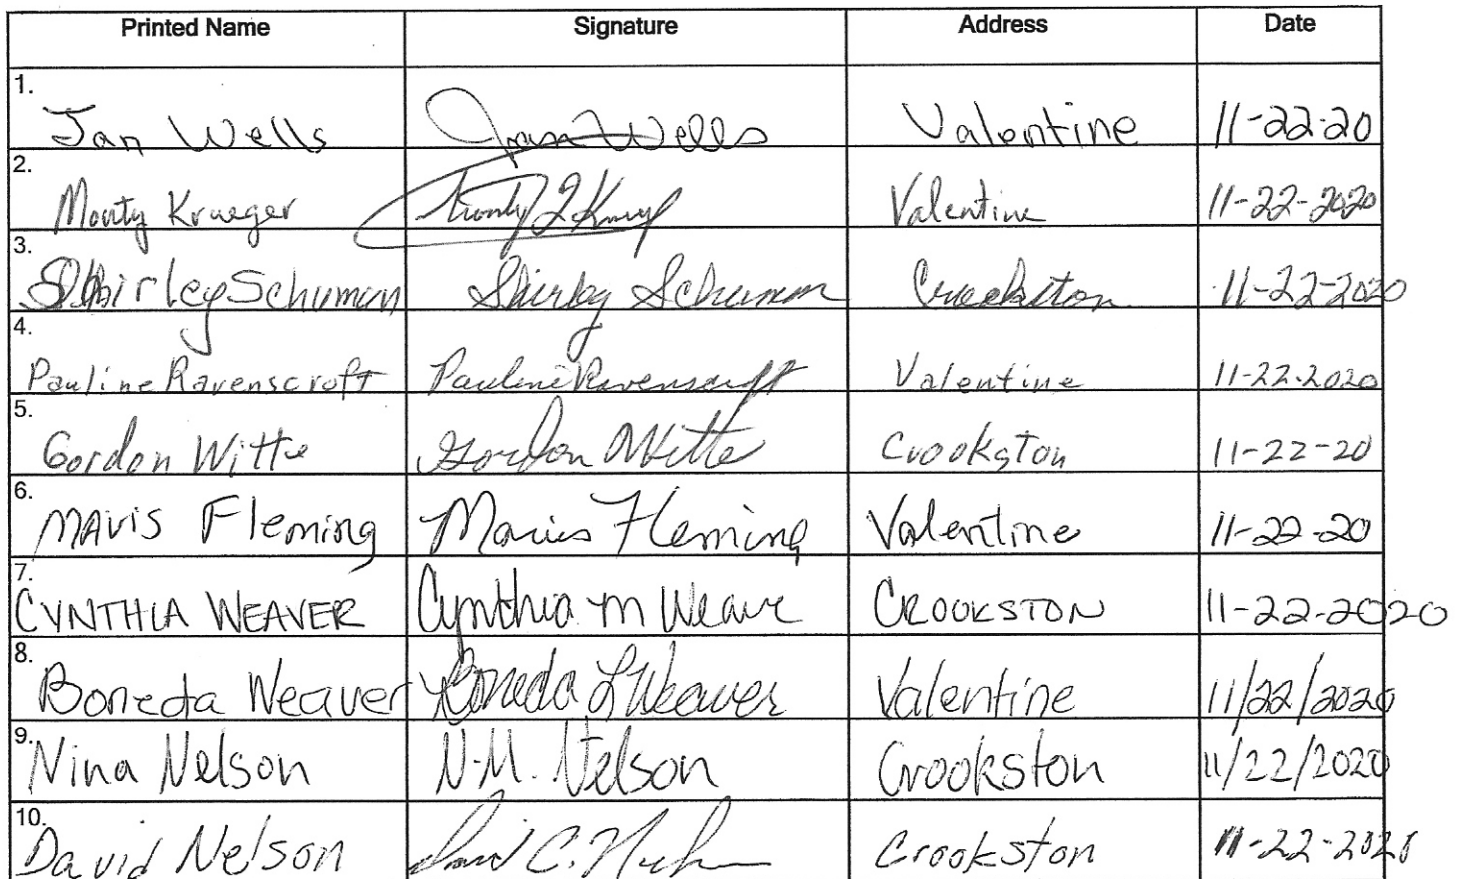 Printed Name Signature Address Date
1. Jan Wells Jan Wells Valentine 11-22-20
2. Monty Krueger Valentine 11-22-2020
3. Shirley Schuman Shirley Schuman Crookston 11-22-2020
4. Pauline Ravenscroft Pauline Ravenscroft Valentine 11-22-2020
5. Gordon Witte Gordon Witte Crookston 11-22-20
6. MAVIS Fleming Mavis Fleming Valentine 11-22-20
7. CYNTHIA WEAVER Cynthia M Weaver CROOKSTON 11-22-2020
8. Boneda Weaver Boneda L Weaver Valentine 11/22/2020
9. Nina Nelson N.M. Nelson Crookston 11/22/2020
10. David Nelson David C. Crookston 11-22-2020